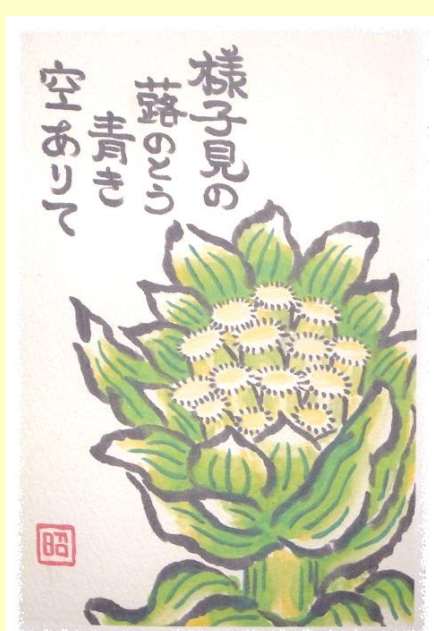 様子見の
蕗のとう
青き
空ありて
昭